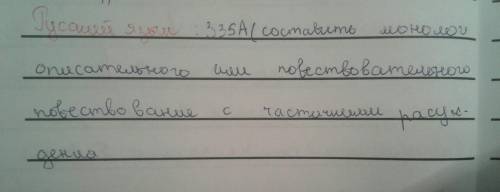 Русский язык : 335А (составить монолог
описательного или повествовательного
повествование с частичками расуж-
дения